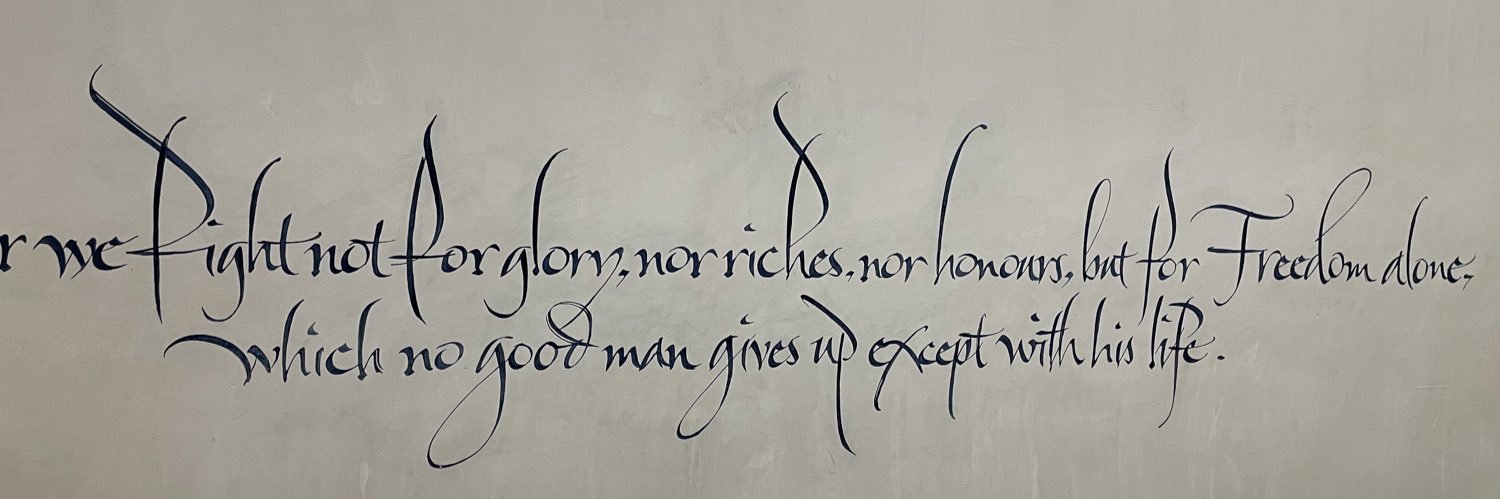 r we fight not for glory, nor riches, nor honours, but for Freedom alone,
which no good man gives up except with his life.